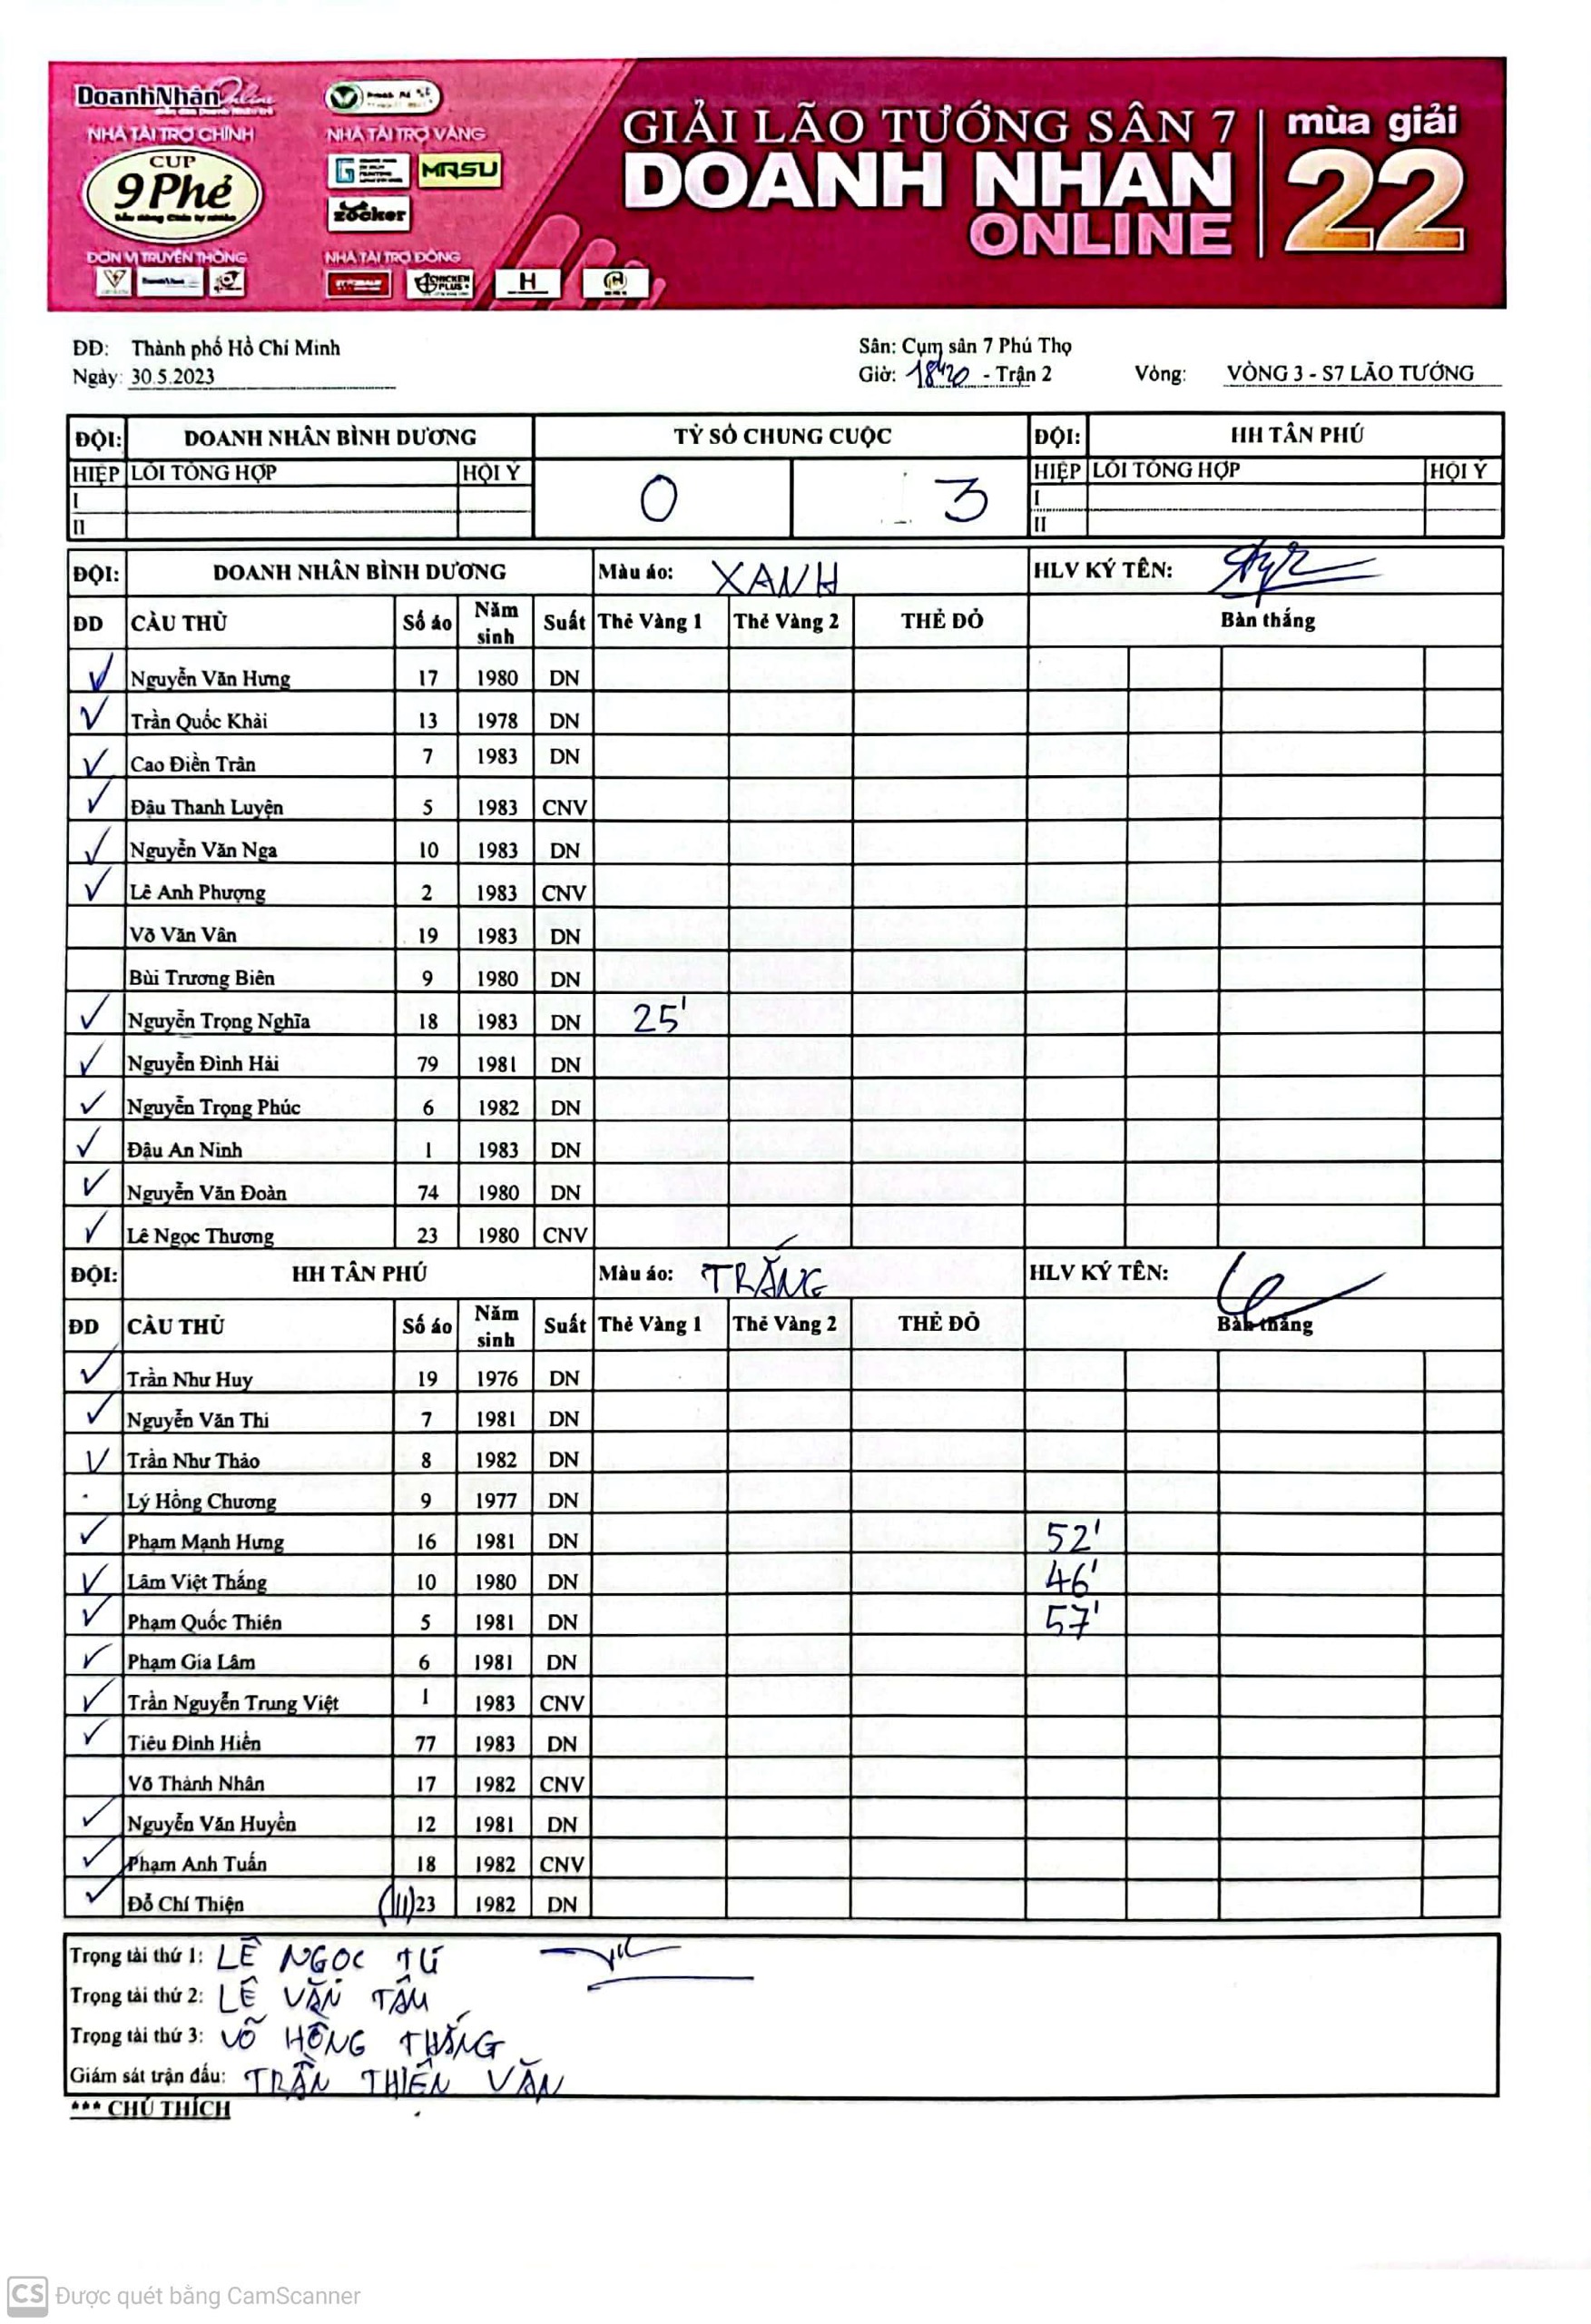 DoanhNhân Online
NHÀ TÀI TRỢ CHÍNH
NHÀ TÀI TRỢ VÀNG
CUP
9 Phẻ
MRSU
zocker
ĐƠN VỊ TRUYỀN THÔNG
NHÀ TÀI TRỢ ĐỒNG
CHICKEN PLUS
H
GIẢI LÃO TƯỚNG SÂN 7
DOANH NHÂN
ONLINE
mùa giải
22
ĐĐ: Thành phố Hồ Chí Minh
Sân: Cụm sân 7 Phú Thọ
Ngày: 30.5.2023
Giờ: 18h20 - Trận 2
Vòng: VÒNG 3 - S7 LÃO TƯỚNG
ĐỘI: DOANH NHÂN BÌNH DƯƠNG TỶ SỐ CHUNG CUỘC ĐỘI: HH TÂN PHÚ
HIỆP LỖI TỔNG HỢP HỘI Ý 0 3 HIỆP LỖI TỔNG HỢP HỘI Ý
I I
II II
ĐỘI: DOANH NHÂN BÌNH DƯƠNG Màu áo: XANH HLV KÝ TÊN:
ĐD CẦU THỦ Số áo Năm sinh Suất Thẻ Vàng 1 Thẻ Vàng 2 THẺ ĐỎ Bàn thắng
✓ Nguyễn Văn Hưng 17 1980 DN
✓ Trần Quốc Khải 13 1978 DN
✓ Cao Điền Trân 7 1983 DN
✓ Đậu Thanh Luyện 5 1983 CNV
✓ Nguyễn Văn Nga 10 1983 DN
✓ Lê Anh Phượng 2 1983 CNV
Võ Văn Vân 19 1983 DN
Bùi Trương Biên 9 1980 DN
✓ Nguyễn Trọng Nghĩa 18 1983 DN 25'
✓ Nguyễn Đình Hải 79 1981 DN
✓ Nguyễn Trọng Phúc 6 1982 DN
✓ Đậu An Ninh 1 1983 DN
✓ Nguyễn Văn Đoàn 74 1980 DN
✓ Lê Ngọc Thương 23 1980 CNV
ĐỘI: HH TÂN PHÚ Màu áo: TRẮNG HLV KÝ TÊN:
ĐD CẦU THỦ Số áo Năm sinh Suất Thẻ Vàng 1 Thẻ Vàng 2 THẺ ĐỎ Bàn thắng
✓ Trần Như Huy 19 1976 DN
✓ Nguyễn Văn Thi 7 1981 DN
✓ Trần Như Thảo 8 1982 DN
Lý Hồng Chương 9 1977 DN
✓ Phạm Mạnh Hưng 16 1981 DN 52'
✓ Lâm Việt Thắng 10 1980 DN 46'
✓ Phạm Quốc Thiên 5 1981 DN 57'
✓ Phạm Gia Lâm 6 1981 DN
✓ Trần Nguyễn Trung Việt 1 1983 CNV
✓ Tiêu Đình Hiền 77 1983 DN
Võ Thành Nhân 17 1982 CNV
✓ Nguyễn Văn Huyền 12 1981 DN
✓ Phạm Anh Tuấn 18 1982 CNV
✓ Đỗ Chí Thiện (111) 23 1982 DN
Trọng tài thứ 1: LÊ NGỌC TÚ
Trọng tài thứ 2: LÊ VĂN TÂM
Trọng tài thứ 3: VÕ HỒNG THẮNG
Giám sát trận đấu: TRẦN THIỆN VĂN
*** CHÚ THÍCH
CS Được quét bằng CamScanner